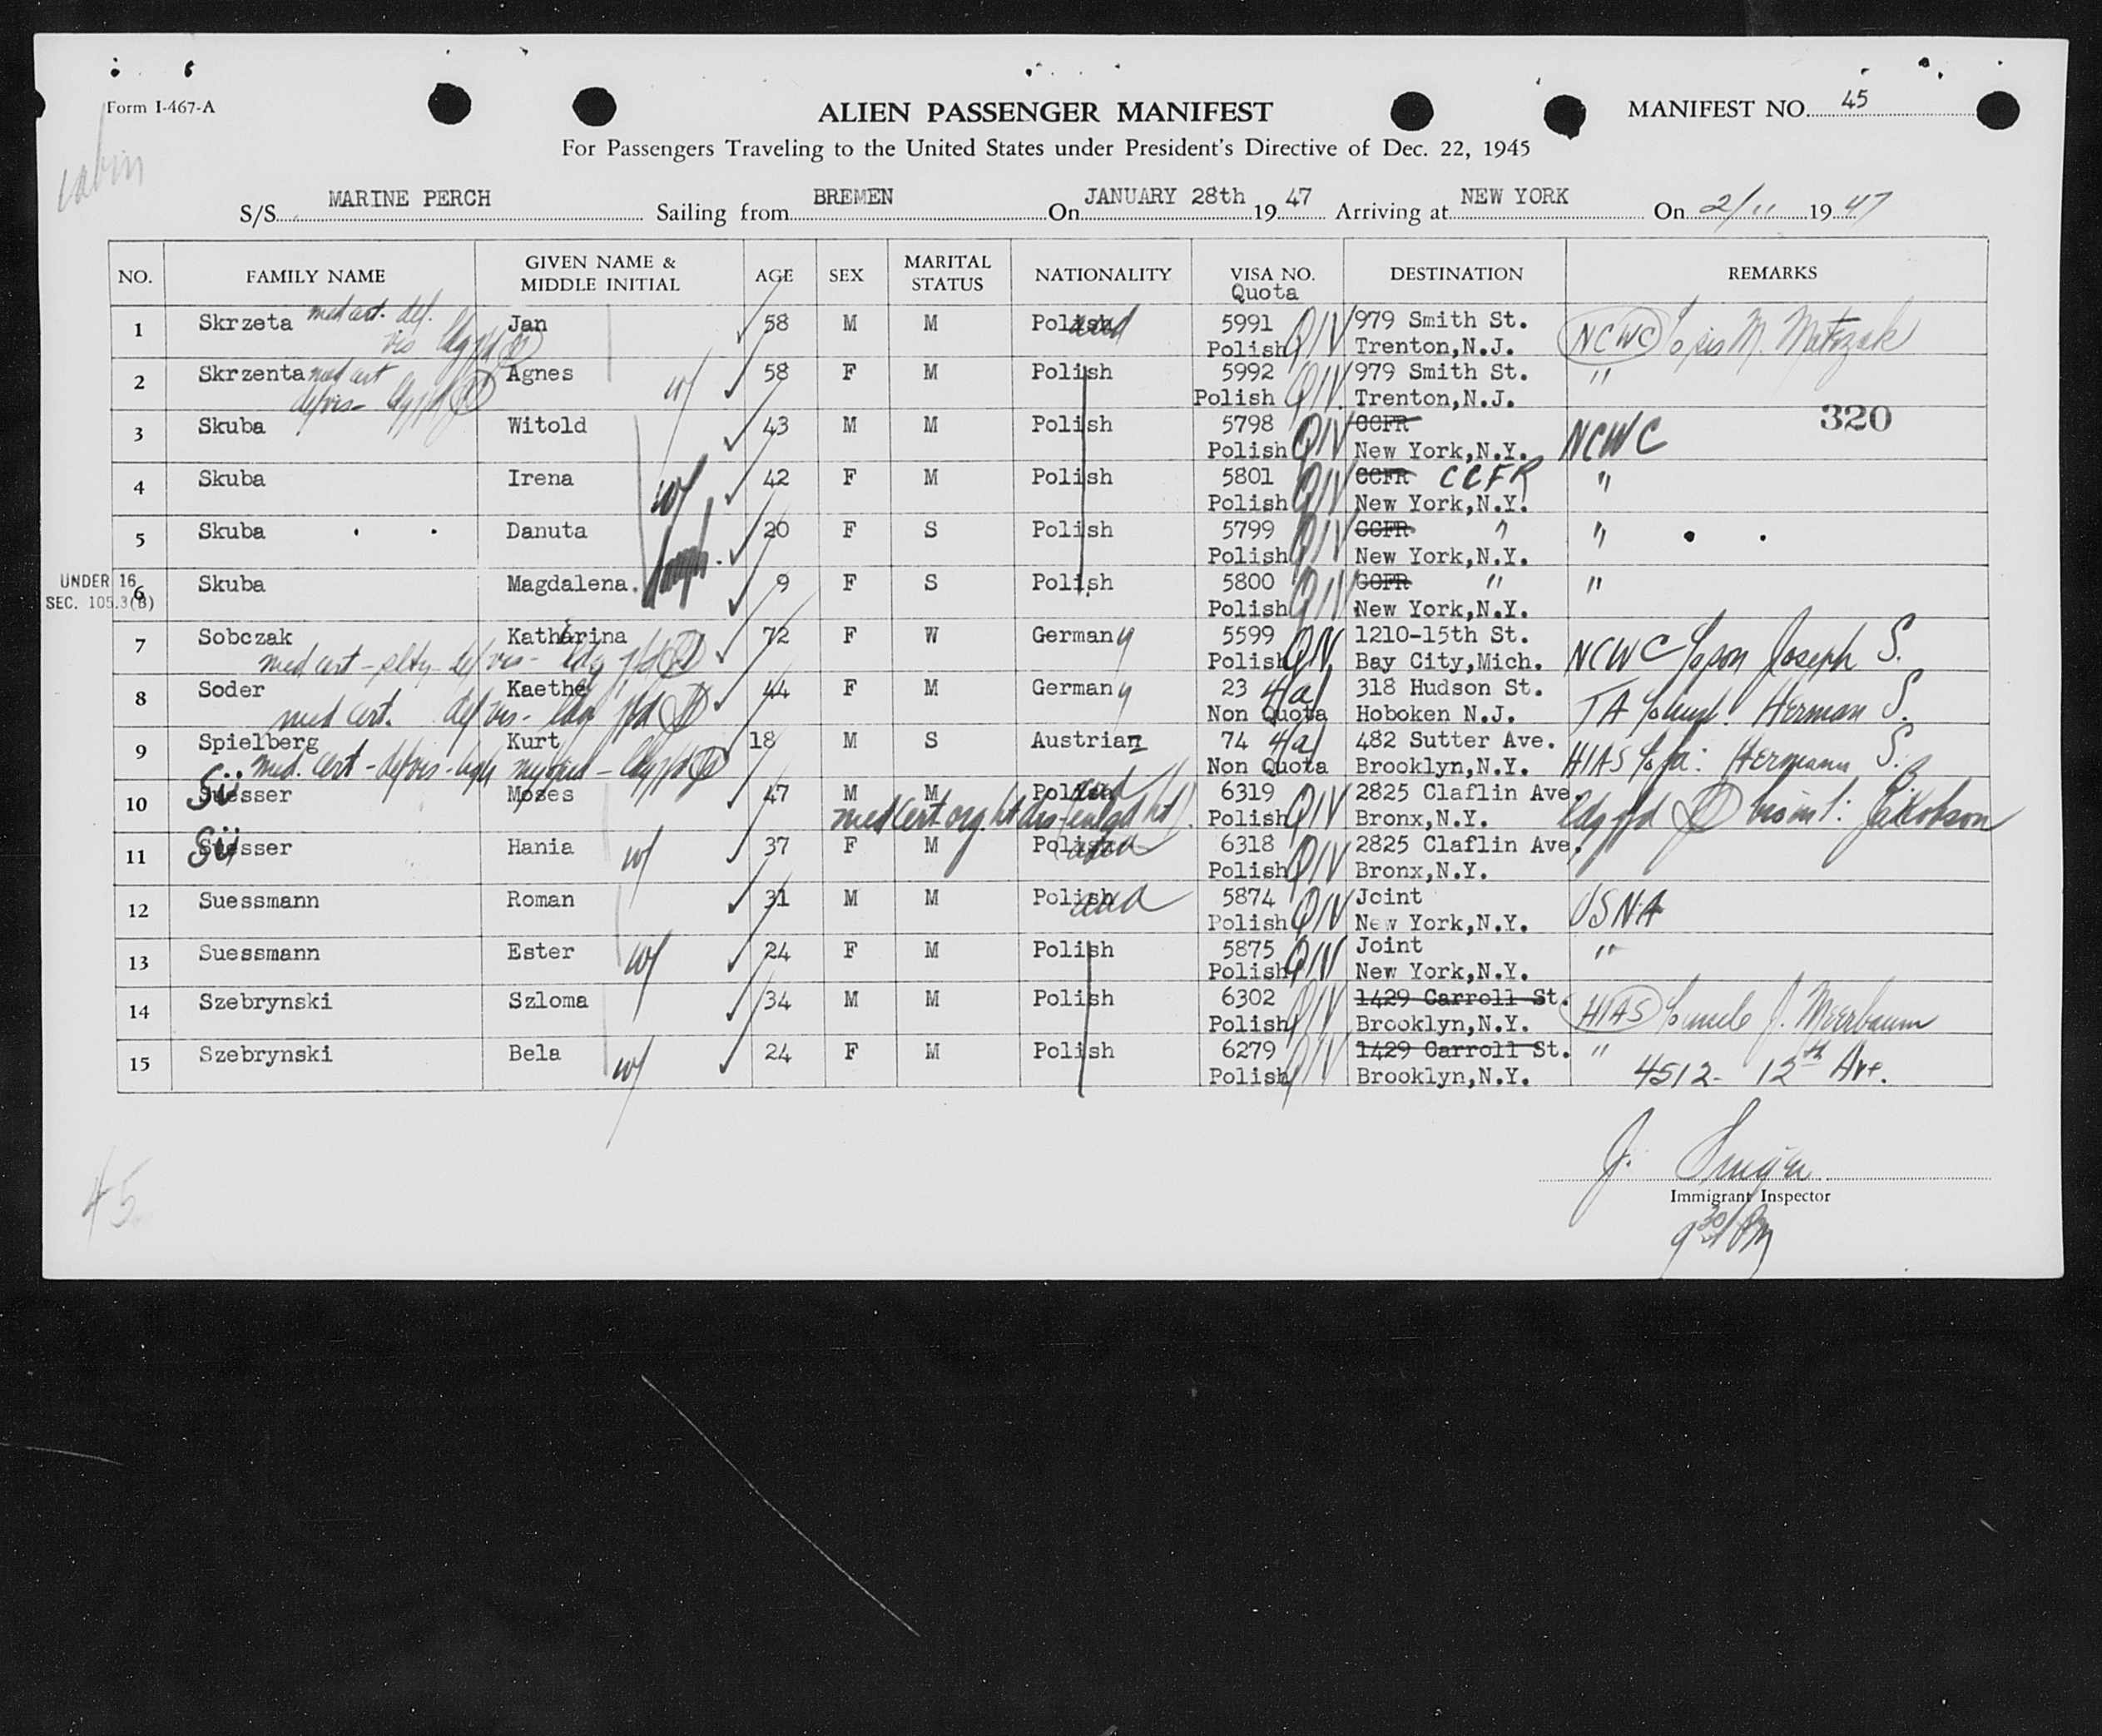 Form I-467-A
ALIEN PASSENGER MANIFEST
MANIFEST NO. 45
For Passengers Traveling to the United States under President's Directive of Dec. 22, 1945
cabin
S/S MARINE PERCH Sailing from BREMEN On JANUARY 28th 19 47 Arriving at NEW YORK On 2/11 19 47
NO. FAMILY NAME GIVEN NAME & MIDDLE INITIAL AGE SEX MARITAL STATUS NATIONALITY VISA NO. Quota DESTINATION REMARKS
1 Skrzeta med cert. def. Jan 58 M M Polish 5991 QIV 979 Smith St. NCWC
vis Polish Trenton,N.J. to sis M. Matczak
2 Skrzenta med cert Agnes 58 F M Polish 5992 QIV 979 Smith St. "
def vis- w/ Polish Trenton,N.J.
320
3 Skuba Witold 43 M M Polish 5798 QIV CCFR NCWC
Polish New York,N.Y.
4 Skuba Irena w/ 42 F M Polish 5801 QIV CCFR CCFR "
Polish New York,N.Y.
5 Skuba Danuta 20 F S Polish 5799 QIV CCFR " "
Polish New York,N.Y.
UNDER 16
SEC. 105.3(B)
6 Skuba Magdalena. 9 F S Polish 5800 QIV CCFR " "
Polish New York,N.Y.
7 Sobczak Katharina 72 F W Germany 5599 QIV 1210-15th St. NCWC to son Joseph S.
med cert - slty - def vis - ldg Polish Bay City,Mich.
8 Soder Kaethe 44 F M Germany 23 4(a) 318 Hudson St. TA to husb. Herman S.
med cert. def vis - ldg Non Quota Hoboken N.J.
9 Spielberg Kurt 18 M S Austrian 74 4(a) 482 Sutter Ave. HIAS to fa: Hermann S.
med. cert - def vis - high myopia - ldg Non Quota Brooklyn,N.Y.
10 Süesser Moses 47 M M Polish 6319 QIV 2825 Claflin Ave.
med cert org. ht dis (enlgd ht). Polish Bronx,N.Y. Jakobson
11 Süesser Hania w/ 37 F M Polish 6318 QIV 2825 Claflin Ave.
Polish Bronx,N.Y.
12 Suessmann Roman 31 M M Polish 5874 QIV Joint USNA
Polish New York,N.Y.
13 Suessmann Ester w/ 24 F M Polish 5875 QIV Joint "
Polish New York,N.Y.
14 Szebrynski Szloma 34 M M Polish 6302 QIV 1429 Carroll St. HIAS to uncle J. Meerbaum
Polish Brooklyn,N.Y.
15 Szebrynski Bela w/ 24 F M Polish 6279 QIV 1429 Carroll St. "
Polish Brooklyn,N.Y. 4512 - 12th Ave.
J.
Immigrant Inspector
45
9 30/ PM